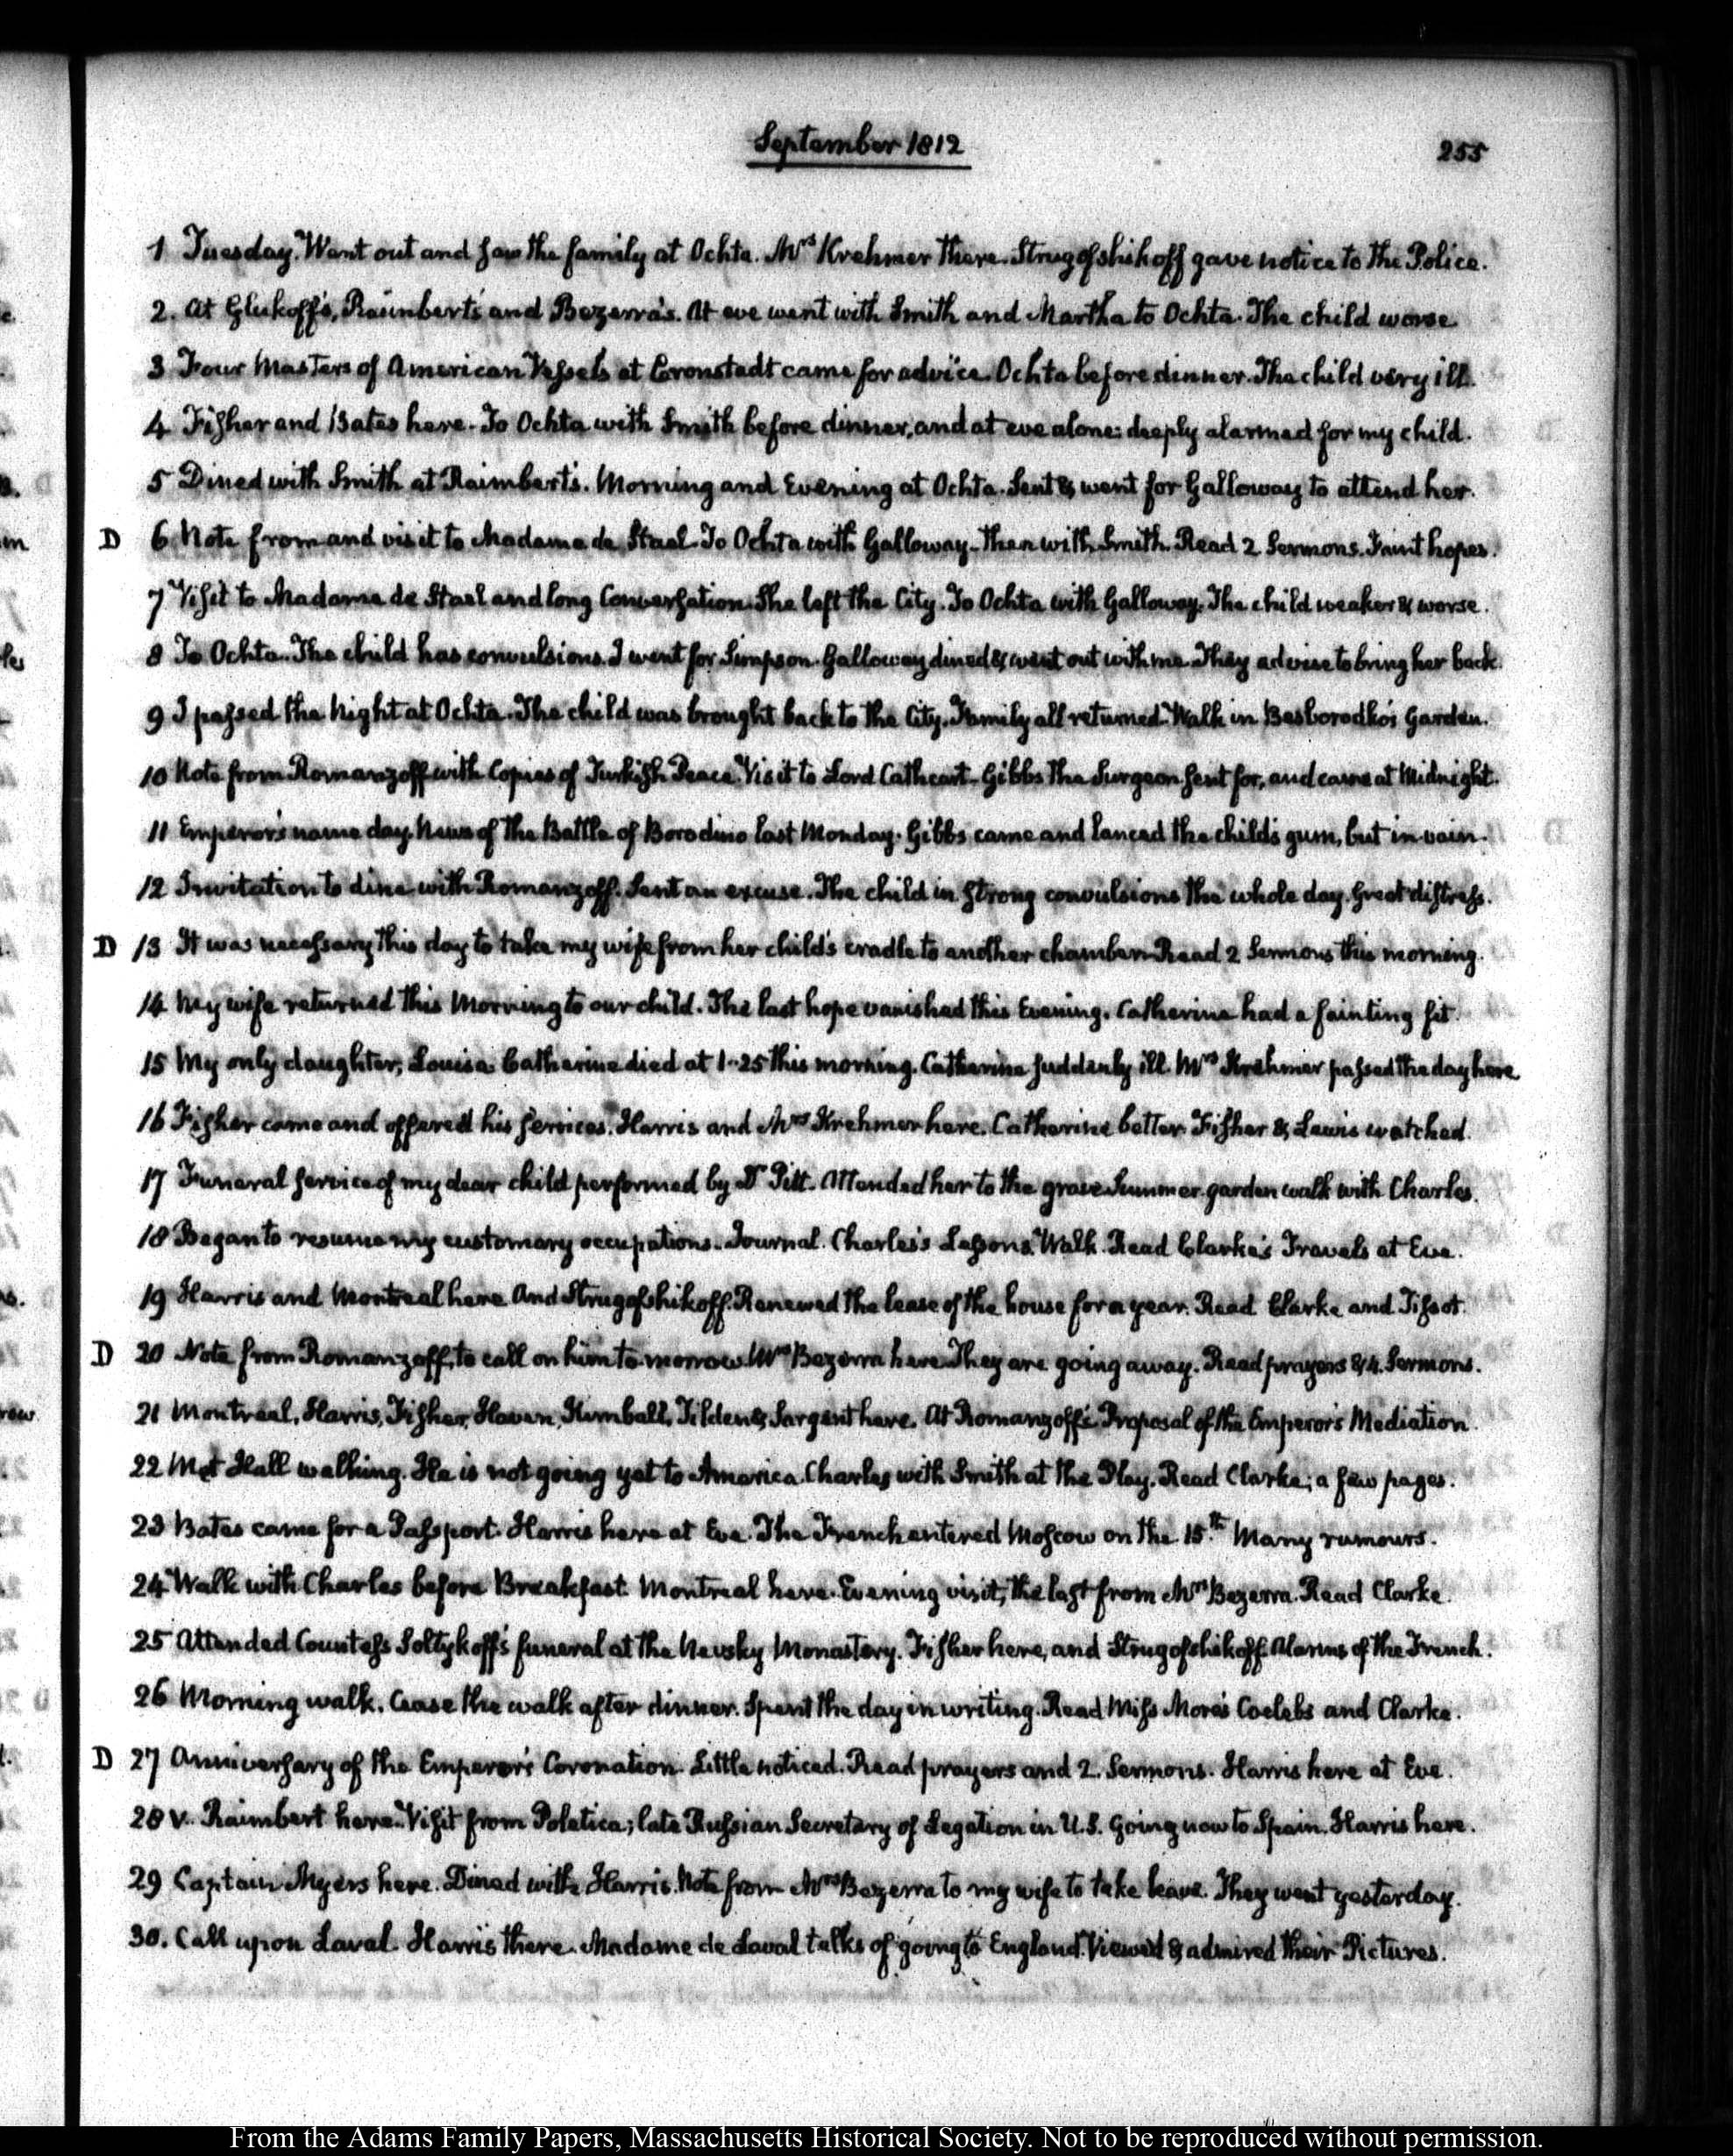 September 1812
255
1 Tuesday. Went out and saw the family at Ochta. Mrs Krehmer there. Strugofshikoff gave notice to the Police.
2. At Glukoff's, Raimbert's and Bezerra's. At eve went with Smith and Martha to Ochta. The child worse.
3 Four Masters of American Vessels at Cronstadt came for advice. Ochta before dinner. The child very ill.
4 Fisher and Bates here. To Ochta with Smith before dinner, and at eve alone: deeply alarmed for my child.
5 Dined with Smith at Raimbert's. Morning and Evening at Ochta. Sent & went for Galloway to attend her.
D 6 Note from and visit to Madame de Stael. To Ochta with Galloway—then with Smith. Read 2 Sermons. Faint hopes.
7 Visit to Madame de Stael and long Conversation. She left the City. To Ochta with Galloway. The child weaker & worse.
8 To Ochta. The child has convulsions. I went for Simpson. Galloway dined & went out with me. They advise to bring her back.
9 I passed the Night at Ochta. The child was brought back to the City. Family all returned. Walk in Besborodko's Garden.
10 Note from Romanzoff with Copies of Turkish Peace. Visit to Lord Cathcart—Gibbs the Surgeon sent for, and came at Midnight.
11 Emperor's name day. News of the Battle of Borodino last Monday. Gibbs came and lanced the child's gum, but in vain.
12 Invitation to dine with Romanzoff. Sent an excuse. The child in strong convulsions the whole day. Great distress.
D 13 It was necessary this day to take my wife from her child's cradle to another chamber. Read 2 Sermons this morning.
14 My wife returned this Morning to our child. The last hope vanished this Evening. Catherine had a fainting fit.
15 My only daughter, Louisa Catherine died at 1-25 this morning. Catherine suddenly ill. Mrs Krehmer passed the day here
16 Fisher came and offered his services. Harris and Mrs Krehmer here. Catherine better. Fisher & Lewis watched.
17 Funeral service of my dear child performed by Dr Pitt. Attended her to the grave. Summer garden walk with Charles.
18 Began to resume my customary occupations. Journal. Charles's Lessons. Walk. Read Clarke's Travels at Eve.
19 Harris and Montreal here And Strugofshikoff. Renewed the lease of the house for a year. Read Clarke and Tissot.
D 20 Note from Romanzoff, to call on him to-morrow. Mrs Bezerra here. They are going away. Read prayers & 4. Sermons.
21 Montreal, Harris, Fisher, Haven, Kimball, Tilden & Sargent here. At Romanzoff's. Proposal of the Emperor's Mediation.
22 Met Hall walking. He is not going yet to America. Charles with Smith at the Play. Read Clarke; a few pages.
23 Bates came for a Passport. Harris here at Eve. The French entered Moscow on the 15th. Many rumours.
24 Walk with Charles before Breakfast. Montreal here. Evening visit, the last from Mrs Bezerra. Read Clarke.
25 Attended Countess Soltykoff's funeral at the Nevsky Monastery. Fisher here, and Strugofshikoff. Alarms of the French.
26 Morning walk. Cease the walk after dinner. Spent the day in writing. Read Miss More's Coelebs and Clarke.
D 27 Anniversary of the Emperor's Coronation. Little noticed. Read prayers and 2. Sermons. Harris here at Eve.
28 V. Raimbert here. Visit from Poletica; late Russian Secretary of Legation in U.S. Going now to Spain. Harris here.
29 Captain Myers here. Dined with Harris. Note from Mrs Bezerra to my wife to take leave. They went yesterday.
30. Call upon Laval. Harris there. Madame de Laval talks of going to England. Viewed & admired their Pictures.
From the Adams Family Papers, Massachusetts Historical Society. Not to be reproduced without permission.